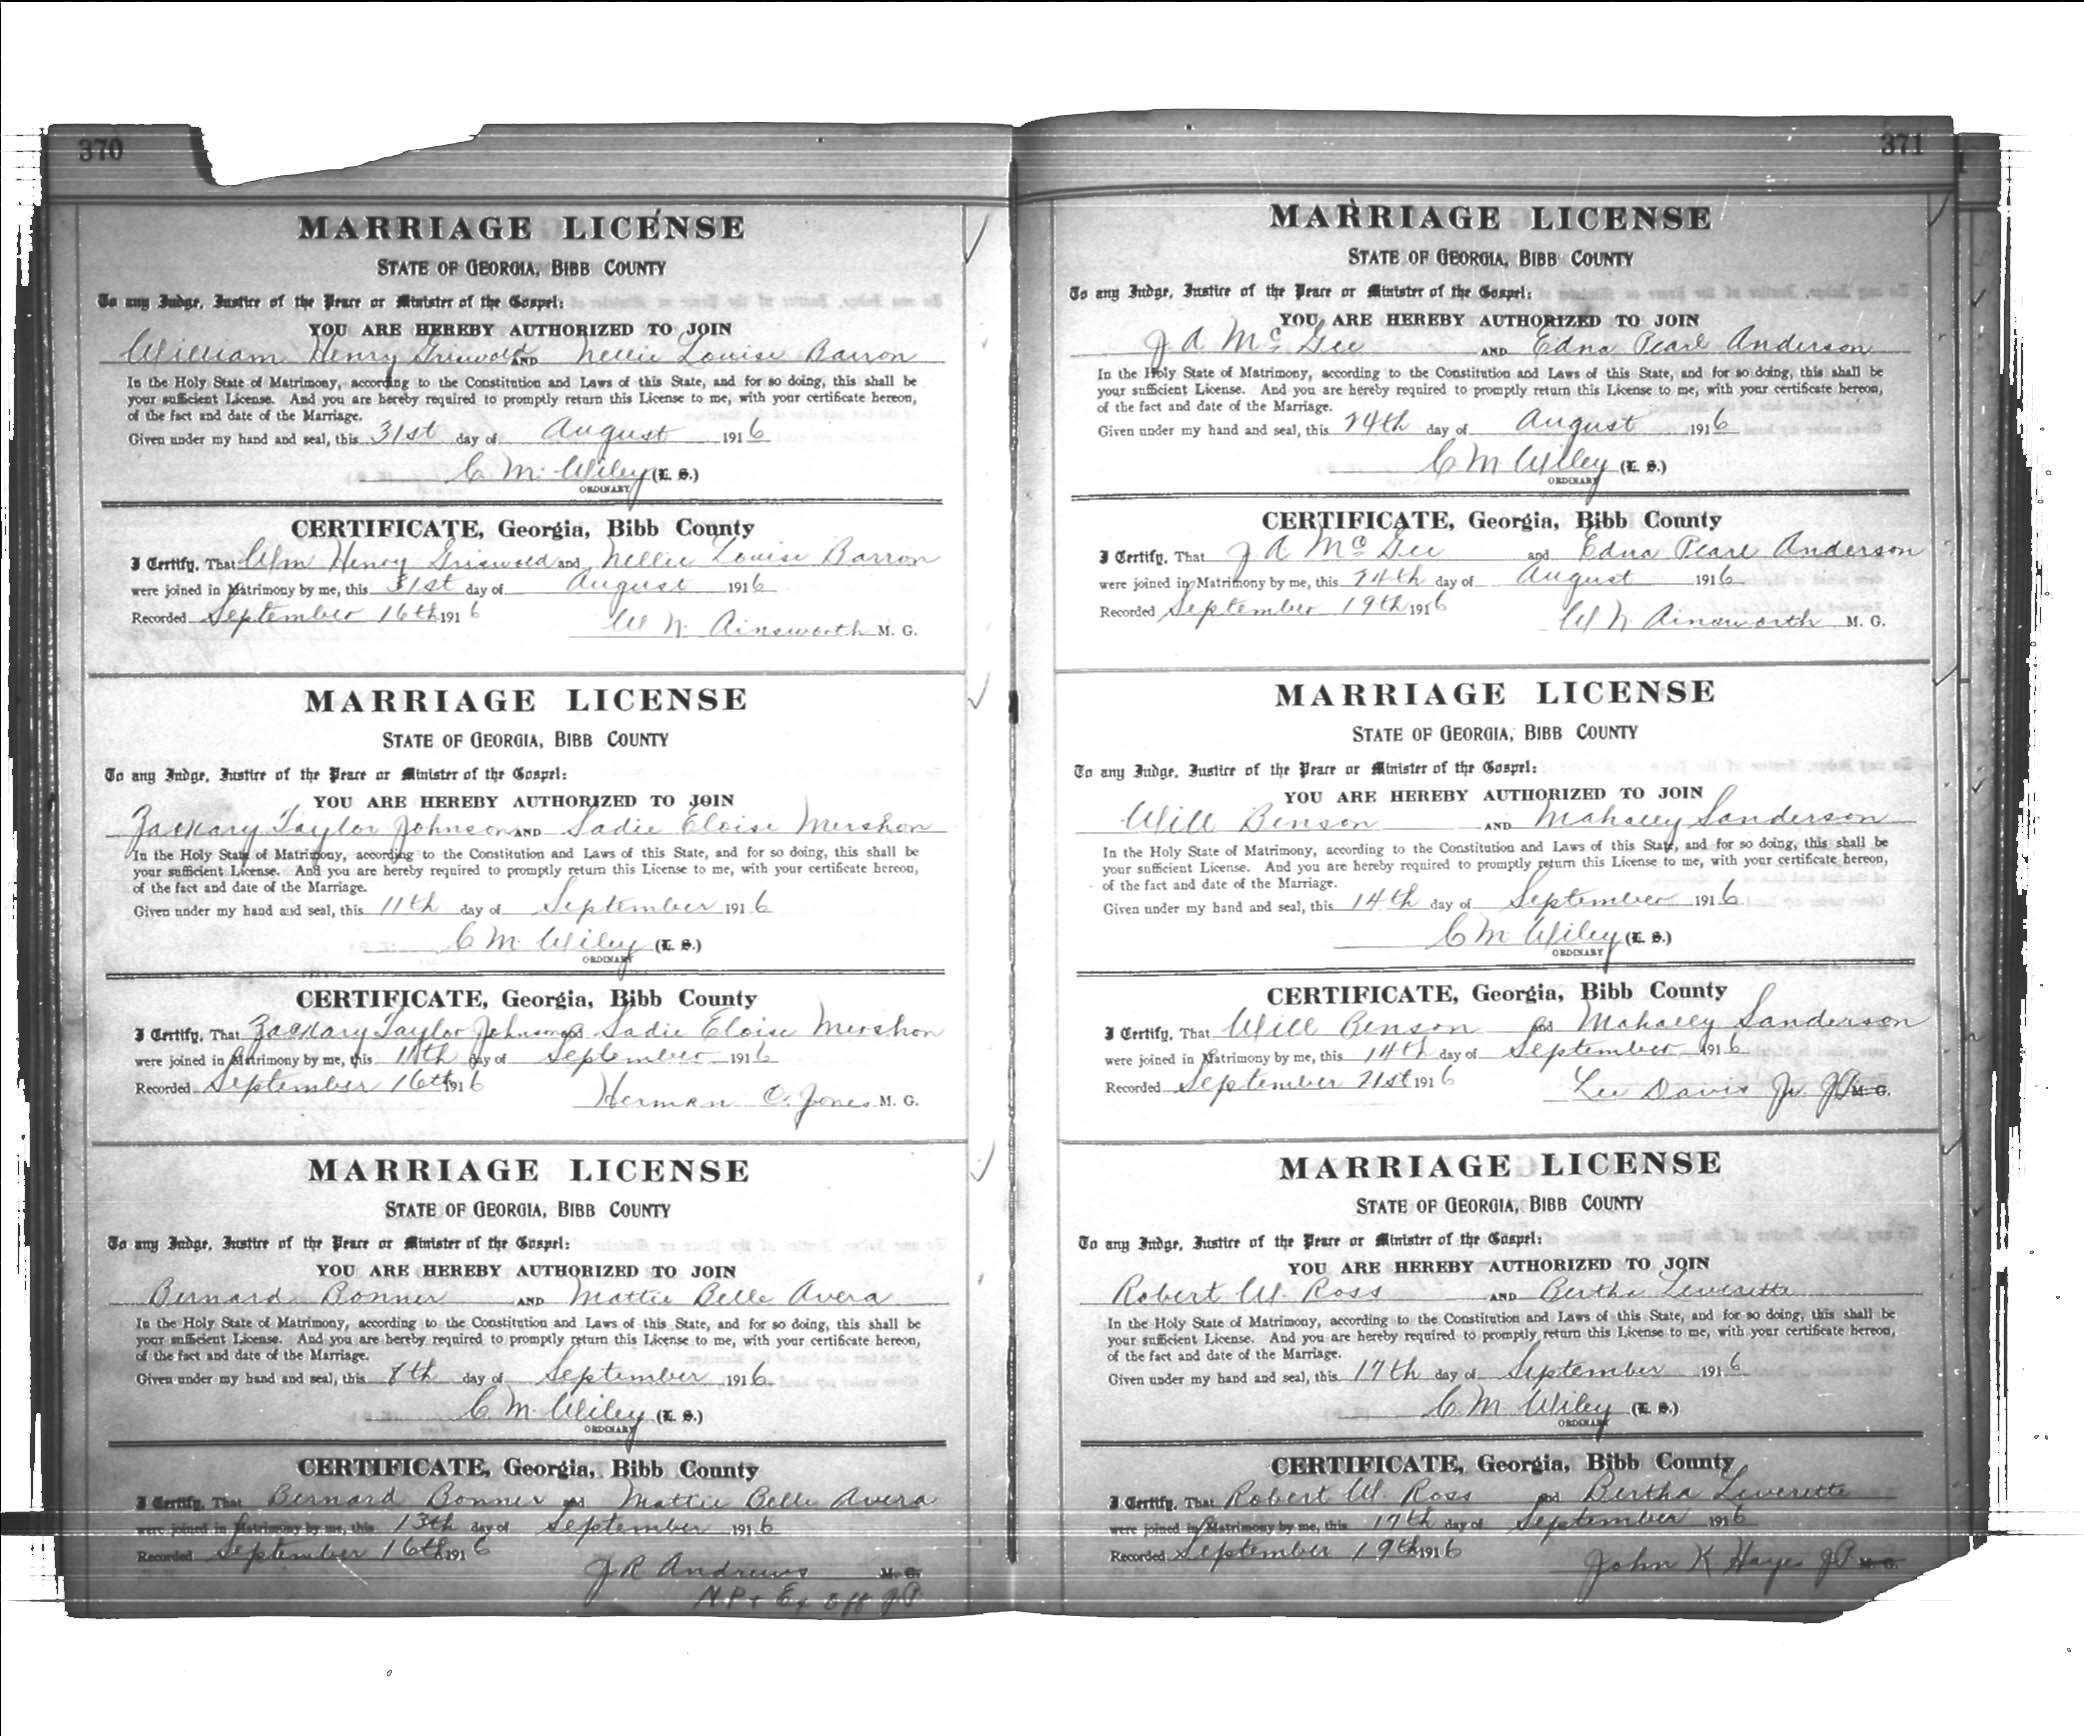 370
MARRIAGE LICENSE
STATE OF GEORGIA, BIBB COUNTY
To any Judge, Justice of the Peace or Minister of the Gospel:
YOU ARE HEREBY AUTHORIZED TO JOIN
William Henry Griswold AND Nellie Louise Barron
In the Holy State of Matrimony, according to the Constitution and Laws of this State, and for so doing, this shall be
your sufficient License. And you are hereby required to promptly return this License to me, with your certificate hereon,
of the fact and date of the Marriage.
Given under my hand and seal, this 31st day of August 1916
C. M. Wiley (L. S.)
ORDINARY
CERTIFICATE, Georgia, Bibb County
I Certify, That Wm Henry Griswold and Nellie Louise Barron
were joined in Matrimony by me, this 31st day of August 1916
Recorded September 16th 1916
W N. Ainsworth M. G.
MARRIAGE LICENSE
STATE OF GEORGIA, BIBB COUNTY
To any Judge, Justice of the Peace or Minister of the Gospel:
YOU ARE HEREBY AUTHORIZED TO JOIN
Zackary Taylor Johnson AND Sadie Eloise Mershon
In the Holy State of Matrimony, according to the Constitution and Laws of this State, and for so doing, this shall be
your sufficient License. And you are hereby required to promptly return this License to me, with your certificate hereon,
of the fact and date of the Marriage.
Given under my hand and seal, this 11th day of September 1916
C M. Wiley (L. S.)
ORDINARY
CERTIFICATE, Georgia, Bibb County
I Certify, That Zackary Taylor Johnson and Sadie Eloise Mershon
were joined in Matrimony by me, this 11th day of September 1916
Recorded September 16th 1916
Herman C. Jones M. G.
MARRIAGE LICENSE
STATE OF GEORGIA, BIBB COUNTY
To any Judge, Justice of the Peace or Minister of the Gospel:
YOU ARE HEREBY AUTHORIZED TO JOIN
Bernard Bonner AND Mattie Belle Avera
In the Holy State of Matrimony, according to the Constitution and Laws of this State, and for so doing, this shall be
your sufficient License. And you are hereby required to promptly return this License to me, with your certificate hereon,
of the fact and date of the Marriage.
Given under my hand and seal, this 8th day of September 1916
C. M. Wiley (L. S.)
ORDINARY
CERTIFICATE, Georgia, Bibb County
I Certify, That Bernard Bonner and Mattie Belle Avera
were joined in Matrimony by me, this 13th day of September 1916
Recorded September 16th 1916
J R Andrews M. G.
N. P. & Ex Off J P
371
MARRIAGE LICENSE
STATE OF GEORGIA, BIBB COUNTY
To any Judge, Justice of the Peace or Minister of the Gospel:
YOU ARE HEREBY AUTHORIZED TO JOIN
J A McGee AND Edna Pearl Anderson
In the Holy State of Matrimony, according to the Constitution and Laws of this State, and for so doing, this shall be
your sufficient License. And you are hereby required to promptly return this License to me, with your certificate hereon,
of the fact and date of the Marriage.
Given under my hand and seal, this 24th day of August 1916
C M Wiley (L. S.)
ORDINARY
CERTIFICATE, Georgia, Bibb County
I Certify, That J A McGee and Edna Pearl Anderson
were joined in Matrimony by me, this 24th day of August 1916
Recorded September 19th 1916
W N Ainsworth M. G.
MARRIAGE LICENSE
STATE OF GEORGIA, BIBB COUNTY
To any Judge, Justice of the Peace or Minister of the Gospel:
YOU ARE HEREBY AUTHORIZED TO JOIN
Will Benson AND Mahaley Sanderson
In the Holy State of Matrimony, according to the Constitution and Laws of this State, and for so doing, this shall be
your sufficient License. And you are hereby required to promptly return this License to me, with your certificate hereon,
of the fact and date of the Marriage.
Given under my hand and seal, this 14th day of September 1916
C M Wiley (L. S.)
ORDINARY
CERTIFICATE, Georgia, Bibb County
I Certify, That Will Benson and Mahaley Sanderson
were joined in Matrimony by me, this 14th day of September 1916
Recorded September 21st 1916
Lee Davis Jr. J P M. G.
MARRIAGE LICENSE
STATE OF GEORGIA, BIBB COUNTY
To any Judge, Justice of the Peace or Minister of the Gospel:
YOU ARE HEREBY AUTHORIZED TO JOIN
Robert W. Ross AND Bertha Leverette
In the Holy State of Matrimony, according to the Constitution and Laws of this State, and for so doing, this shall be
your sufficient License. And you are hereby required to promptly return this License to me, with your certificate hereon,
of the fact and date of the Marriage.
Given under my hand and seal, this 17th day of September 1916
C M Wiley (L. S.)
ORDINARY
CERTIFICATE, Georgia, Bibb County
I Certify, That Robert W. Ross and Bertha Leverette
were joined in Matrimony by me, this 17th day of September 1916
Recorded September 19th 1916
John K Hayes J P M. G.